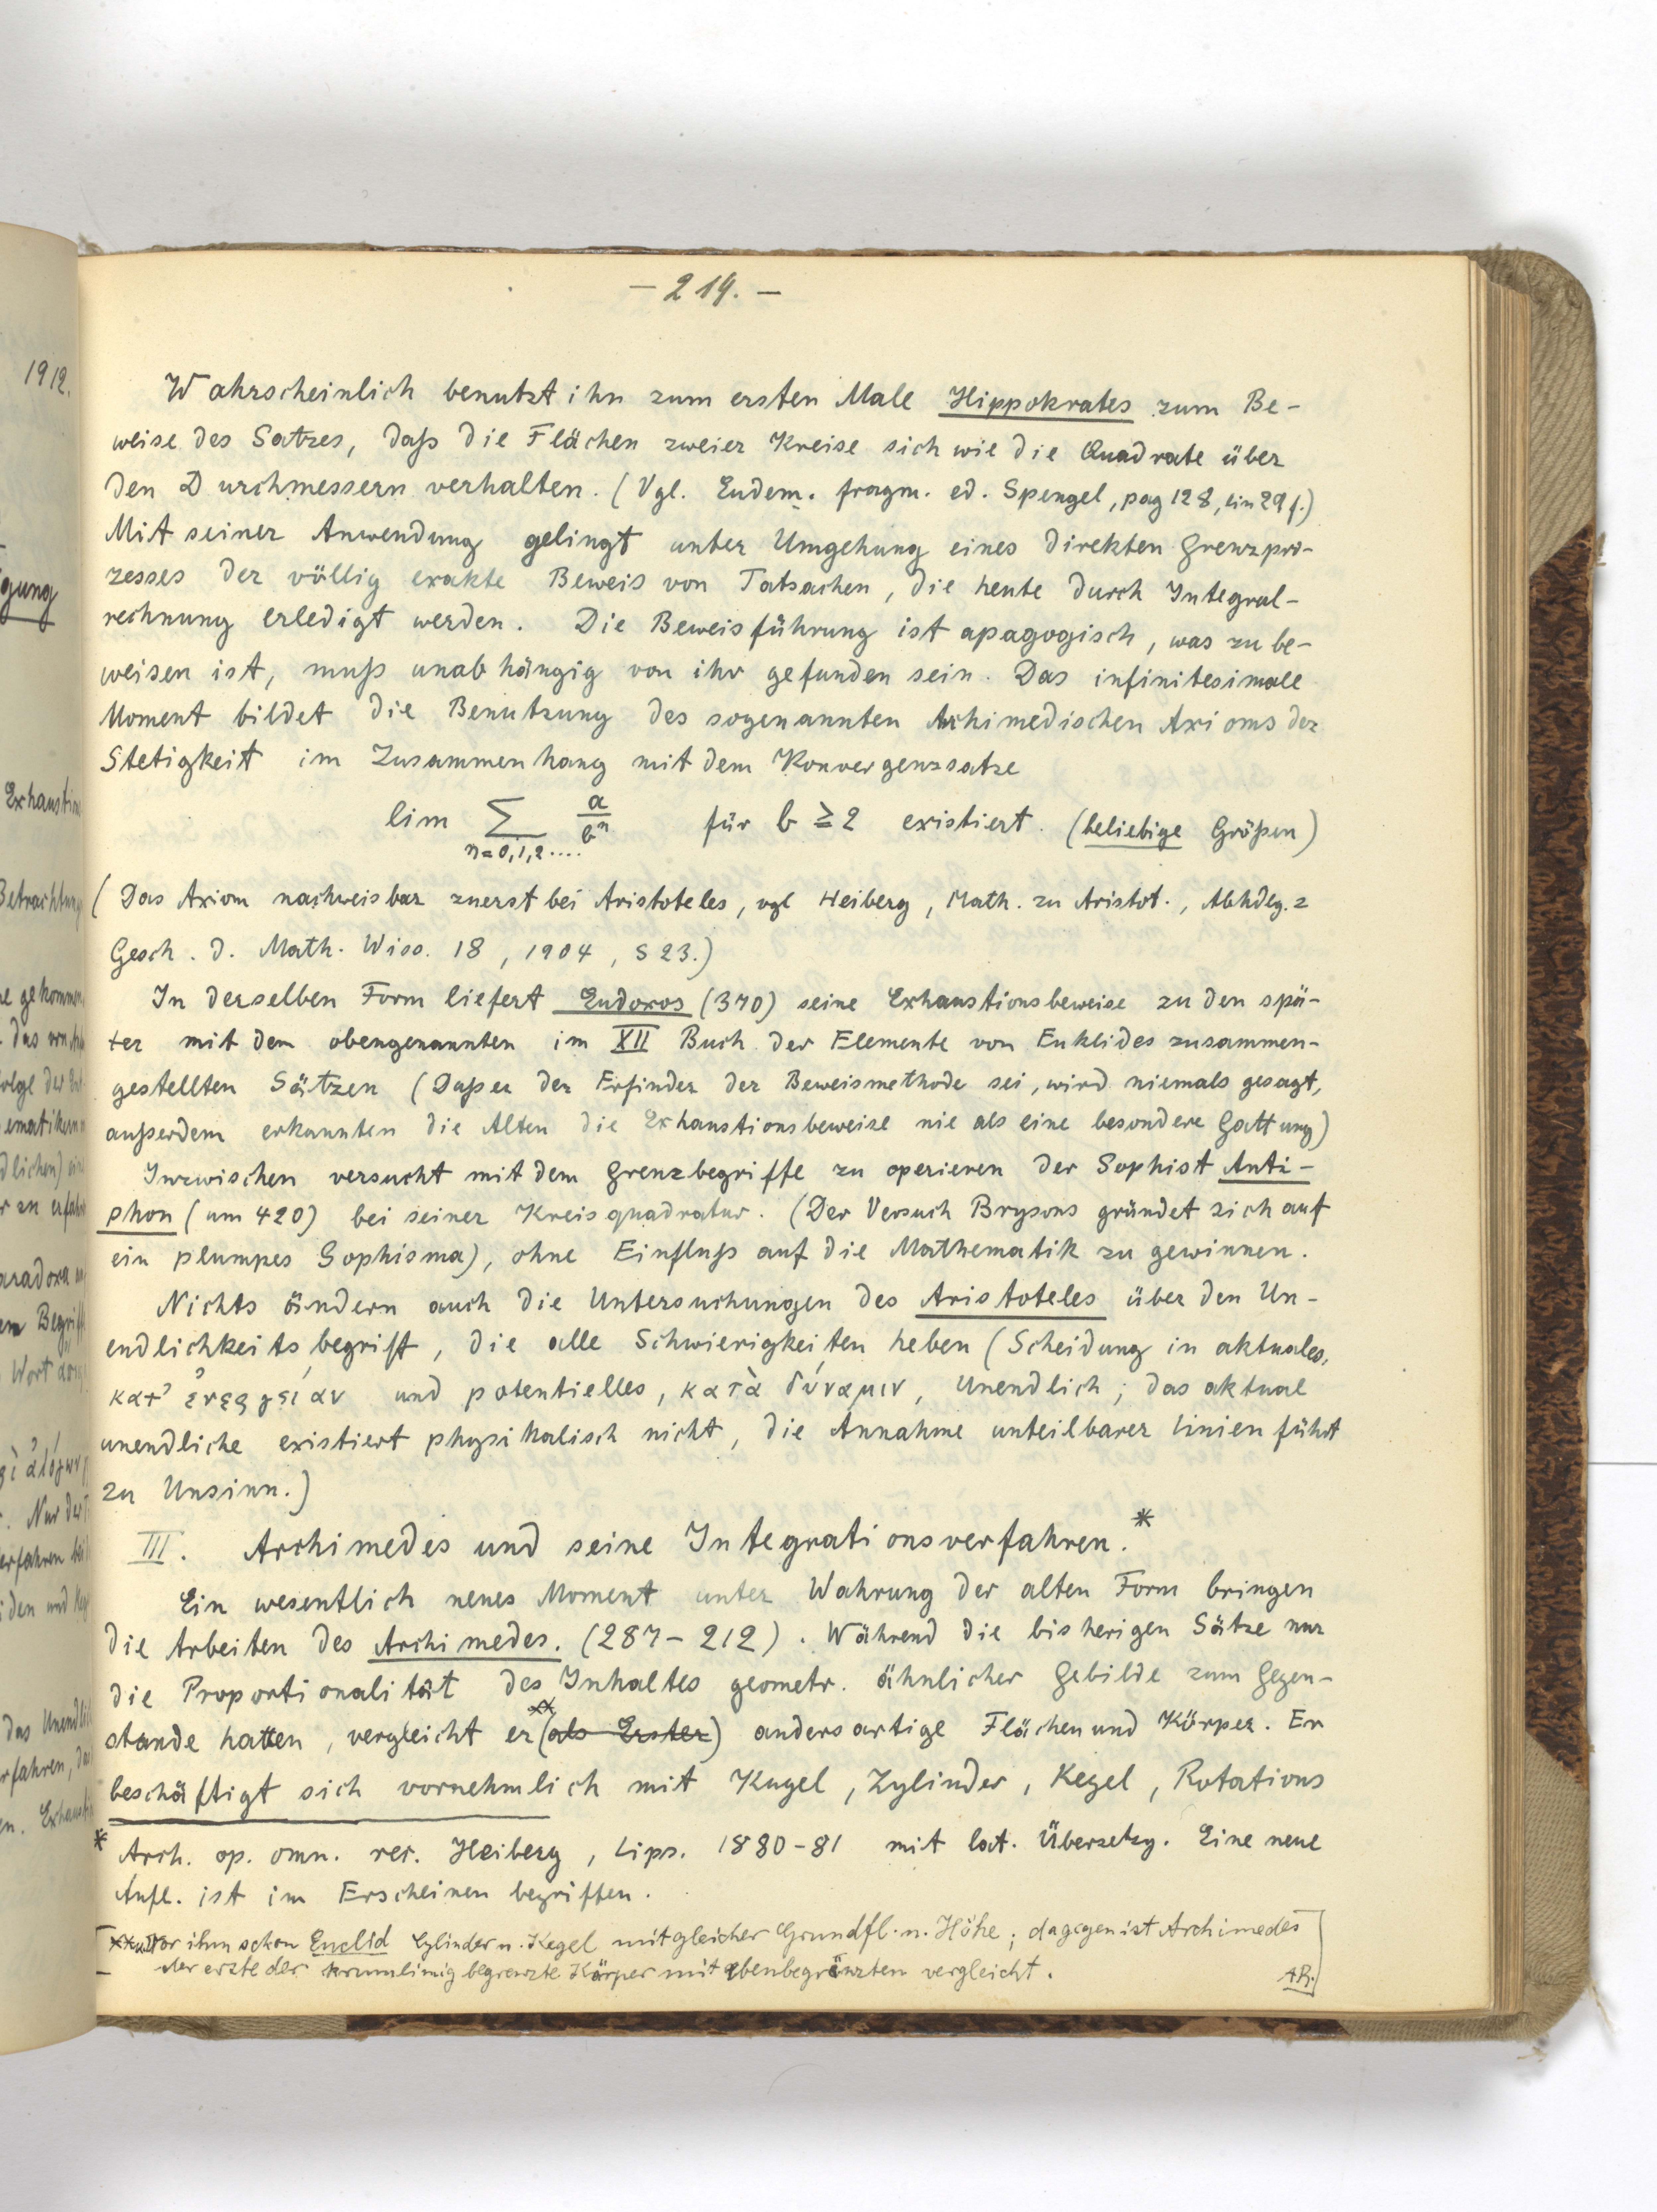 – 219. –
Wahrscheinlich benutzt ihn zum ersten Male Hippokrates zum Be-
weise des Satzes, daß die Flächen zweier Kreise sich wie die Quadrate über
den Durchmessern verhalten. (Vgl. Eudem. fragm. ed. Spengel, pag 128, lin 29 f.)
Mit seiner Anwendung gelingt unter Umgehung eines direkten Grenzpro-
zesses der völlig exakte Beweis von Tatsachen, die heute durch Integral-
rechnung erledigt werden. Die Beweisführung ist apagogisch, was zu be-
weisen ist, muß unabhängig von ihr gefunden sein. Das infinitesimale
Moment bildet die Benutzung des sogenannten Archimedischen Axioms der
Stetigkeit im Zusammenhang mit dem Konvergenzsatze
lim ∑ n=0,1,2.... a/bⁿ für b ≥ 2 existiert. (beliebige Größen)
(Das Axiom nachweisbar zuerst bei Aristoteles, vgl Heiberg, Math. zu Aristot., Abhdlg. z
Gesch. d. Math. Wiss. 18, 1904, S 23.)
In derselben Form liefert Eudoxos (370) seine Exhaustionsbeweise zu den spä-
ter mit dem obengenannten im XII Buch der Elemente von Euklides zusammen-
gestellten Sätzen (Daß er der Erfinder der Beweismethode sei, wird niemals gesagt,
außerdem erkannten die Alten die Exhaustionsbeweise nie als eine besondere Gattung)
Inzwischen versucht mit dem Grenzbegriffe zu operieren der Sophist Anti-
phon (um 420) bei seiner Kreisquadratur. (Der Versuch Brysons gründet sich auf
ein plumpes Sophisma), ohne Einfluß auf die Mathematik zu gewinnen.
Nichts ändern auch die Untersuchungen des Aristoteles über den Un-
endlichkeitsbegriff, die alle Schwierigkeiten heben (Scheidung in aktuales,
κατ' ἐνεργείαν und potentielles, κατὰ δύναμιν, Unendlich; das aktual
unendliche existiert physikalisch nicht, die Annahme unteilbarer Linien führt
zu Unsinn.)
III. Archimedes und seine Integrationsverfahren.*
Ein wesentlich neues Moment unter Wahrung der alten Form bringen
die Arbeiten des Archimedes. (287–212). Während die bisherigen Sätze nur
die Proportionalität des Inhaltes geometr. ähnlicher Gebilde zum Gegen-
stande hatten, vergleicht er xx (als Erster) andersartige Flächen und Körper. Er
beschäftigt sich vornehmlich mit Kugel, Zylinder, Kegel, Rotations
* Arch. op. omn. rec. Heiberg, Lips. 1880–81 mit lat. Übersetzg. Eine neue
Aufl. ist im Erscheinen begriffen.
xx Vor ihm schon Euclid Cylinder u. Kegel mit gleicher Grundfl. u. Höhe; dagegen ist Archimedes
der erste der krummlinig begrenzte Körper mit ebenbegrenzten vergleicht. AR.
1912.